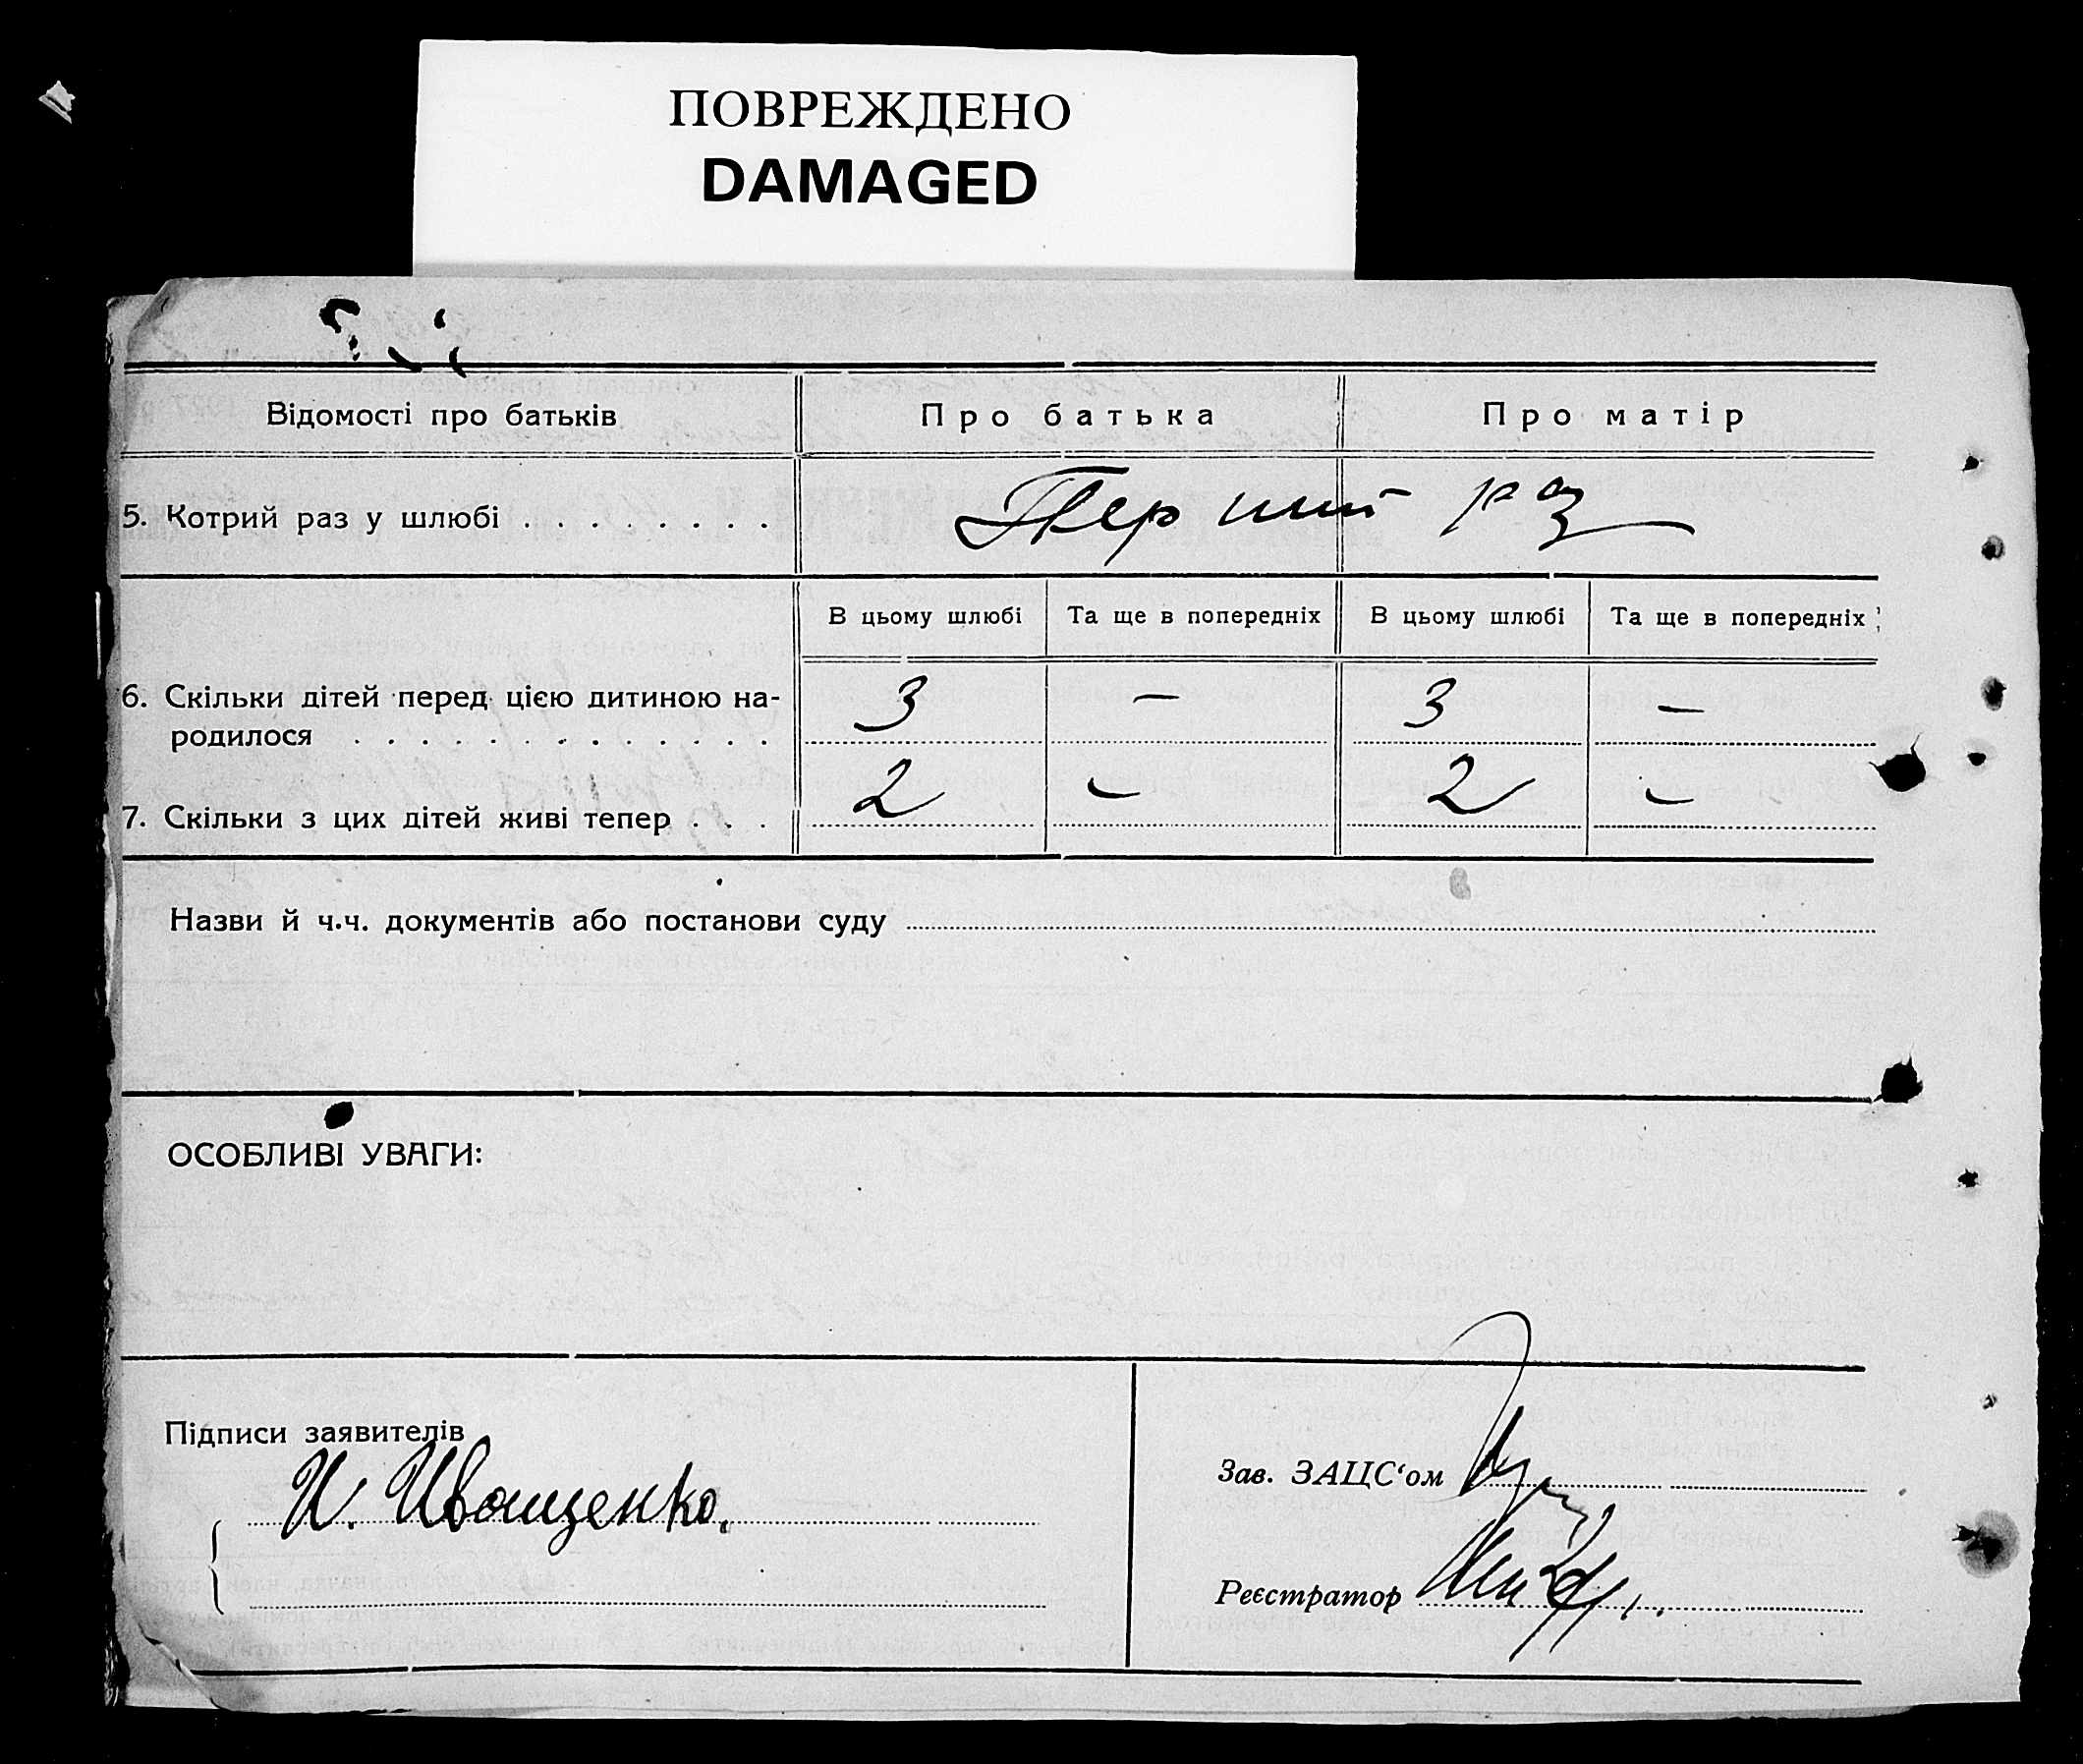 ПОВРЕЖДЕНО
DAMAGED
Відомості про батьків Про батька Про матір
5. Котрий раз у шлюбі . . . . . . . . Перший раз
В цьому шлюбі Та ще в попередніх В цьому шлюбі Та ще в попередніх
6. Скільки дітей перед цією дитиною на-
родилося . . . . . . . . . . . . . 3 — 3 —
7. Скільки з цих дітей живі тепер . . . 2 — 2 —
Назви й ч.ч. документів або постанови суду
ОСОБЛИВІ УВАГИ:
Підписи заявителів
И. Иващенко.
Зав. ЗАЦС‘ом
Реєстратор